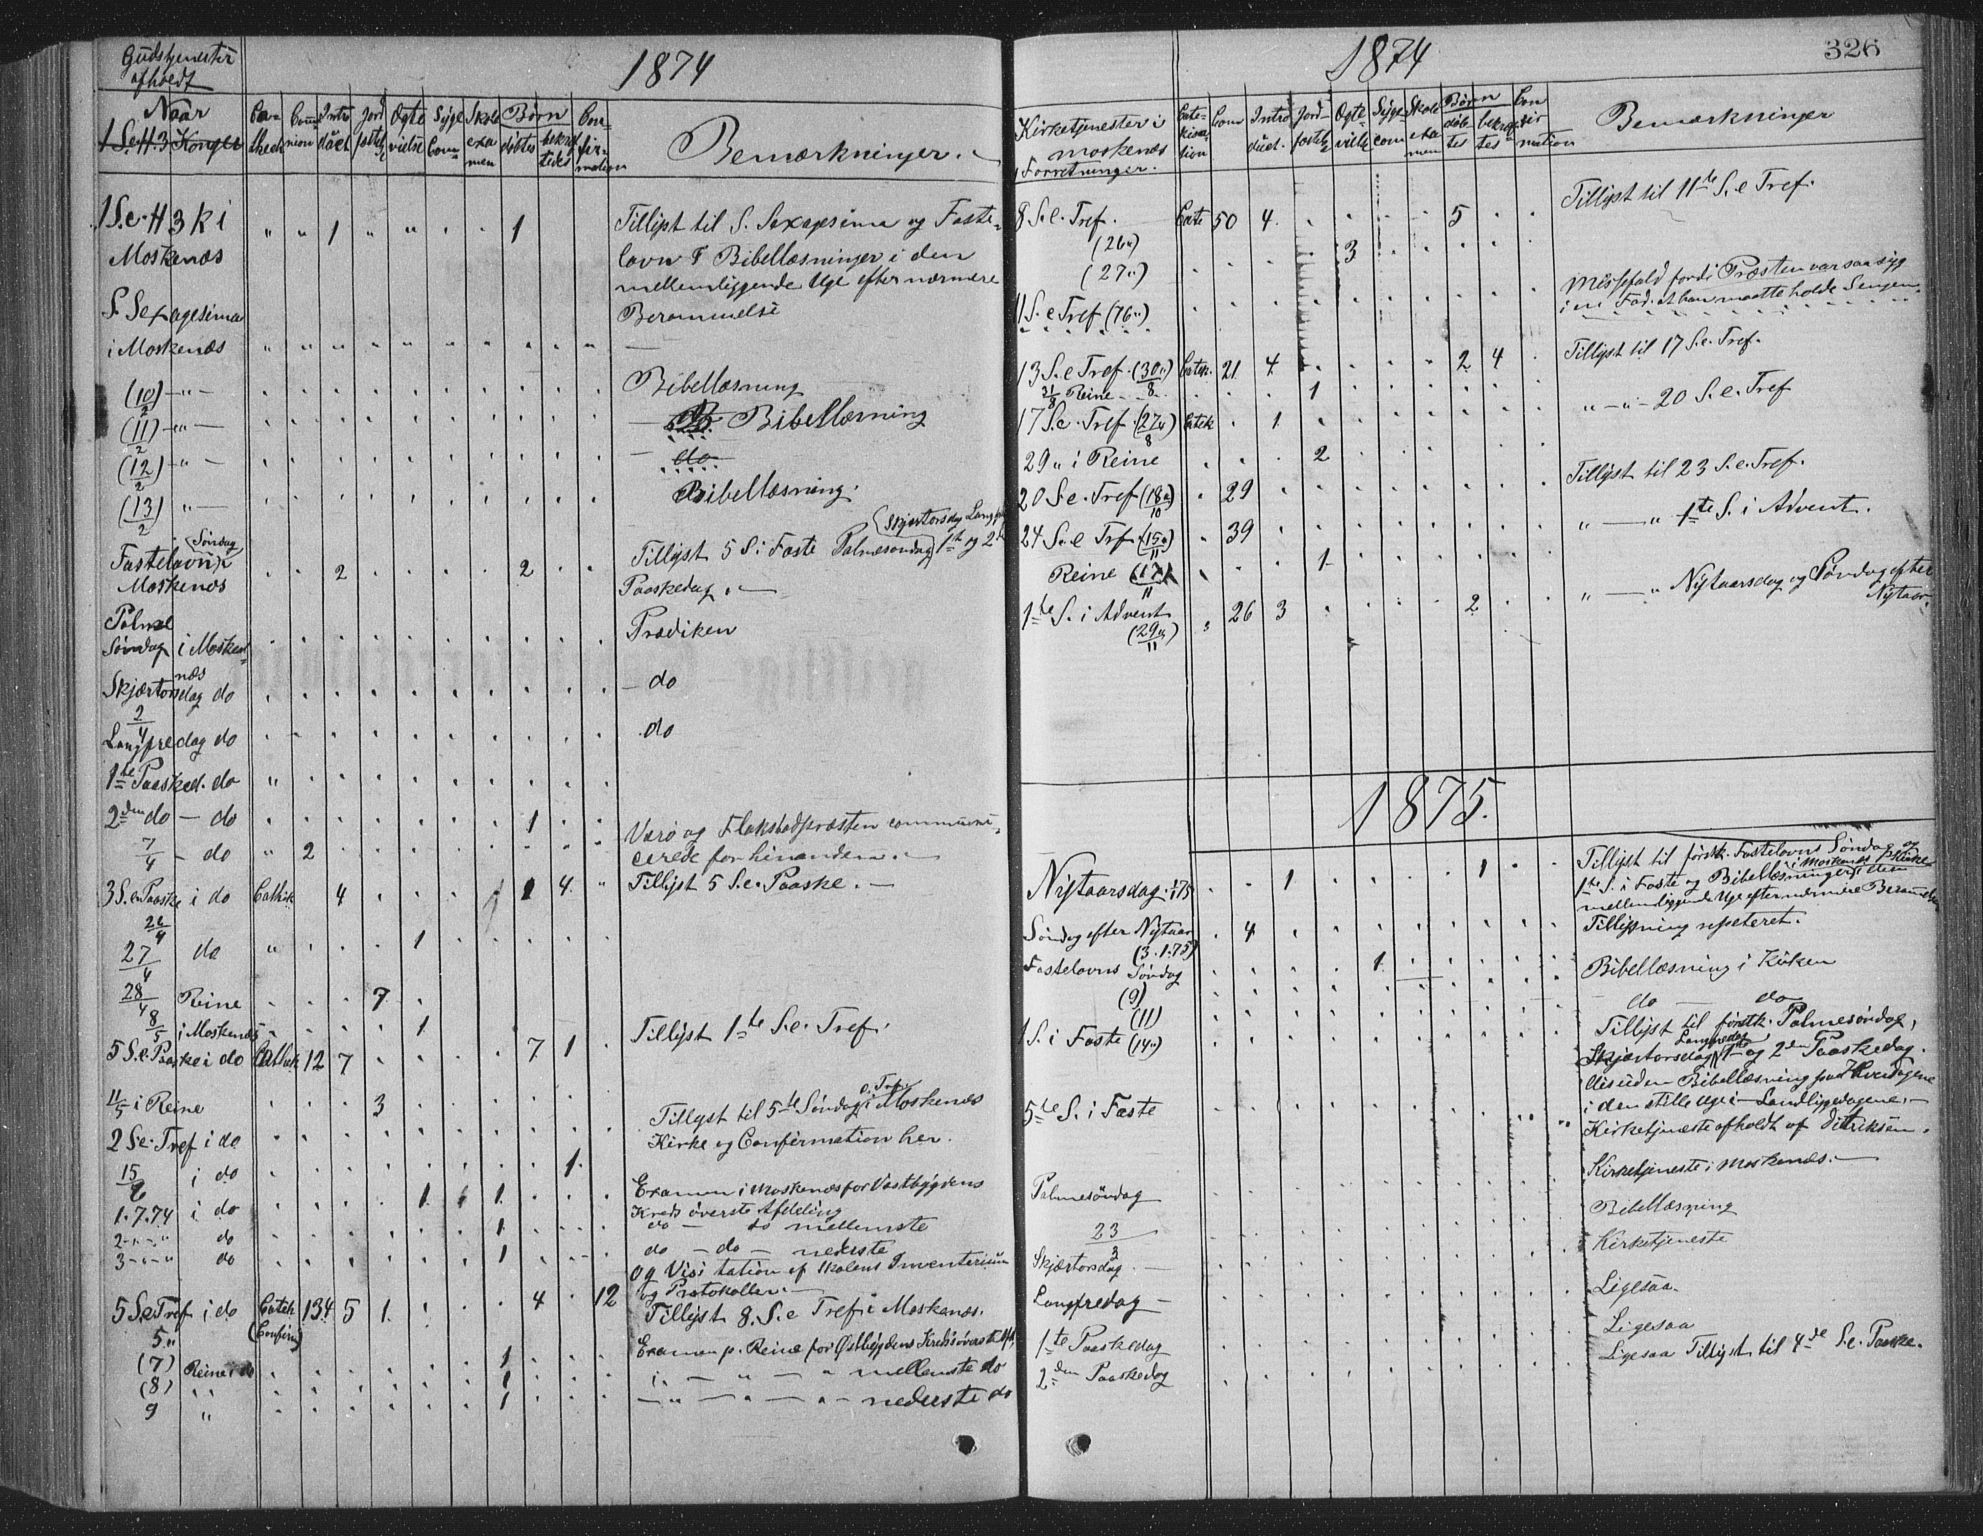 Gudstjenester
afholdt
1874
Naar
1 S.e. H. 3 Konger
Cate-
chech
Comu
nion
Intro
duct
Jord
fæstel
Ægte
vielse
Syge
Com-
Skole
exa
men
Børn
døbtes
bekræf
tiks
Con-
fir-
mation
Bemærkninger.
1 S.e. H 3 k i
Moskenæs
" " 1 " " 1
Tillyst til S. Sexagesima og Faste-
lavn & Bibellæsninger i den
mellemliggende Uge efter nærmere
Berammelse
S. Sexagesima
i Moskenæs
(10/2) - " - Bibellæsning
(11/2) - " - Bibellæsning
(12/2) - " - do
(13/2) " - Bibellæsning.
Søndag
Fastelavn i
Moskenæs
2 2
Skjærtorsdag Langfr
Tillyst 5 S. i Faste Palmesøndag 1ste og 2de
Paaskedag. -
Palme
Søndag i Mosken-
næs
Prædiken
Skjærtorsdag do
2/4
- do
Langfredag do
do
1te Paasked. do
2den do - do 1
7/4 - do " 2
Værø og Flakstadpræsten communi-
cerede for hinanden. -
3 S.e. Paaske i do Cathek 4 1 4 "
26/4
Tillyst 5 S.e. Paaske. -
27/4 do " 1
28/4 Reine 7
8/5 i Moskenæs 1
Tillyst 1te S.e. Tref.
5 S.e. Paaske i do Cathek 12 7 7 1
11/5 i Reine 3
e. Tref.
Tillyst til 5te Søndag i Moskenæs
Kirke og Confirmation her.
2 S.e. Tref i do
15/6 i do 1
1.7.74 i do 1 1
Examen i Moskenæs for Vestbygdens
Kreds øverste Afdeling
2 - " - " do 1 do - do mellemste
3 - " - " do 1 do - do - nederste
og Visitation af Skolens Inventarium
og Protokoller. -
5 S.e Tref i do Catek 134 5 1 4 12
5." (Confirm)
Tillyst 8. S. e Tref i Moskenæs.
(7) Reine i do 1 Examen p. Reine for Østbygdens Kreds øverste Afd.
(8) " " 1 i - " - " mellemste do
9 " 1 - " - " - " - nederste do
1874
326
Kirketjenester i
Moskenæs
Forretninger.
Cate-
kisa
tion
Com
Intro
duct.
Jord-
fæstel
Ægte-
vielse
Syge
com
Skole
exa
men
Børn
døb
tes
bekræf
tes
Con
fir
mation
Bemærkninger
8 S.e. Tref. Cate 50 4. 5 Tillyst til 11te S. e Tref.
(26")
(27") 3
11 S.e Tref (16")
Messefald fordi Præsten var saa syg
i en Fod. at han maatte holde Sengen.
13 S.e Tref. (30"/8) Catek. 21 4 2 4 Tillyst til 17 S.e. Tref.
31/8 Reine 1
17 S.e. Tref. (27"/8) Catek 1 " - " - 20 S.e. Tref
29 " i Reine 2
20 S.e. Tref (18"/10) 29 Tillyst til 23 S.e. Tref.
24 S.e Tref. (15"/11) 39 " — " 1te S. i Advent.
Reine (17/11) 1
1te S. i Advent
(29"/11)
26 3 2
" — " Nytaarsdag og Søndag efter
Nytaar.
1875.
Nytaarsdag. 1/1 75 1 1
Tillyst til førstk. Fastelavns Søndag og
i Moskenæs Kirke
1te S. i Faste og Bibellæsninger i den
mellemliggende Uge efter nærmere Berammelse
Søndag efter Nytaar 4
(3.1.75)
Tillysning repeteret.
Fastelavns Søndag 1
Bibellæsning i Kirken
(9)
(11)
do - do
1 S. i Faste (14")
Tillyst til førstk. Palmesøndag,
Langfredag
Skjærtorsdag 1te og 2den Paaskedag.
desuden Bibellæsning paa Hverdagene
i den stille Uge i - Landliggedagene. -
5te S. i Faste
Kirketjeneste afholdt af Ditriksen.
Palmesøndag
Kirketjeneste i Moskenæs. -
23/3
Bibellæsning
Skjærtorsdag. -
Kirketjeneste
Langfredag -
Ligesaa.
1te Paaskedag
Ligesaa
2den Paaskedag
Ligesaa Tillyst til 4de S.e. Paaske.